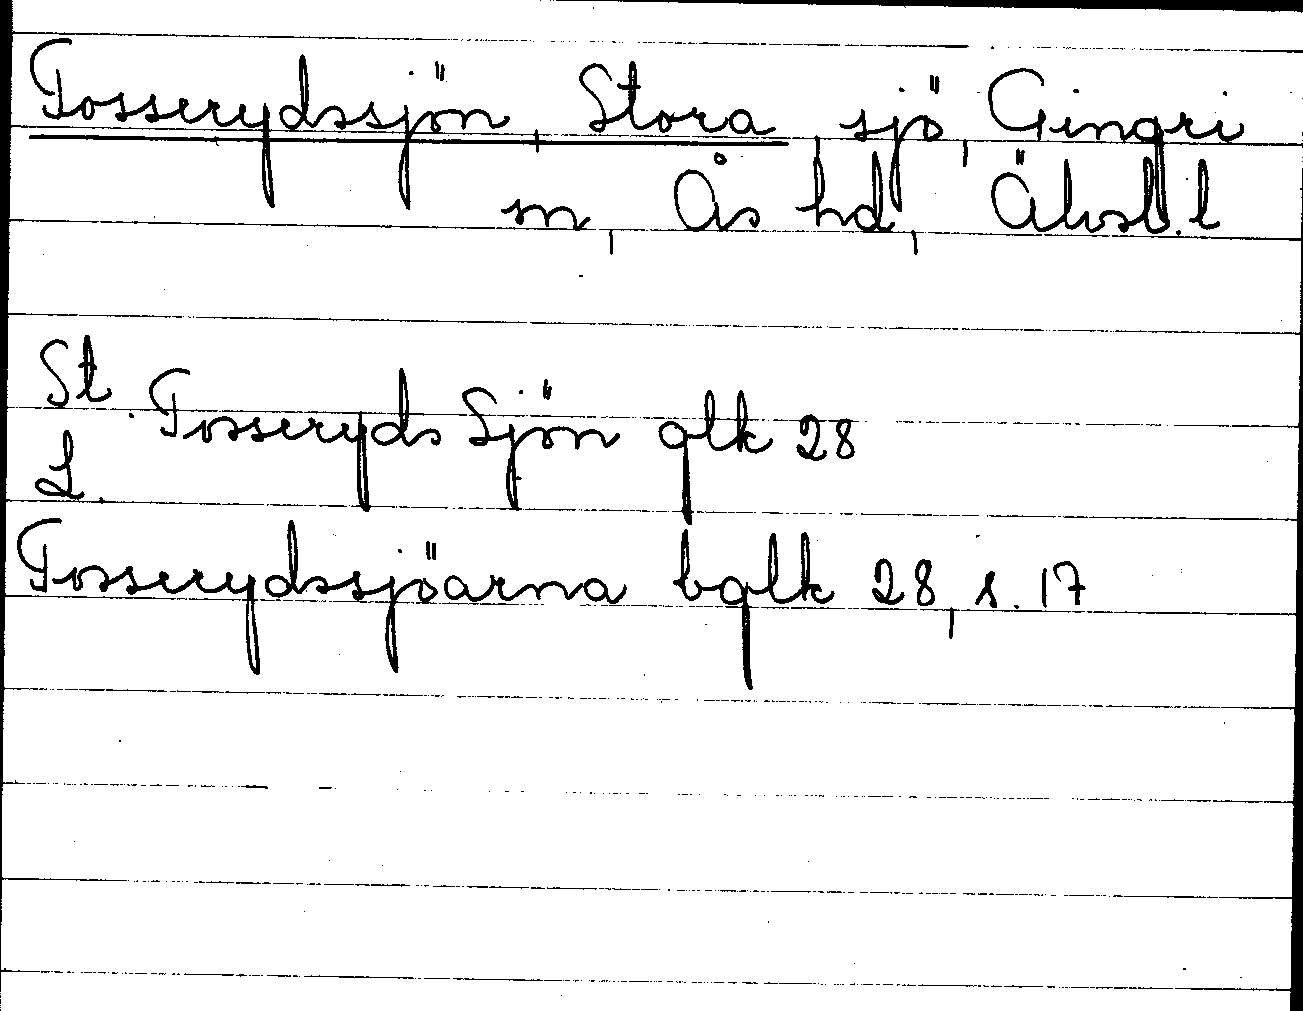 Tosserydssjön, Stora, sjö, Gingri
sn, Ås hd, Älvsb. l
St. Tosseryds Sjön glk 28
L.
Tosserydssjöarna bglk 28, s. 17